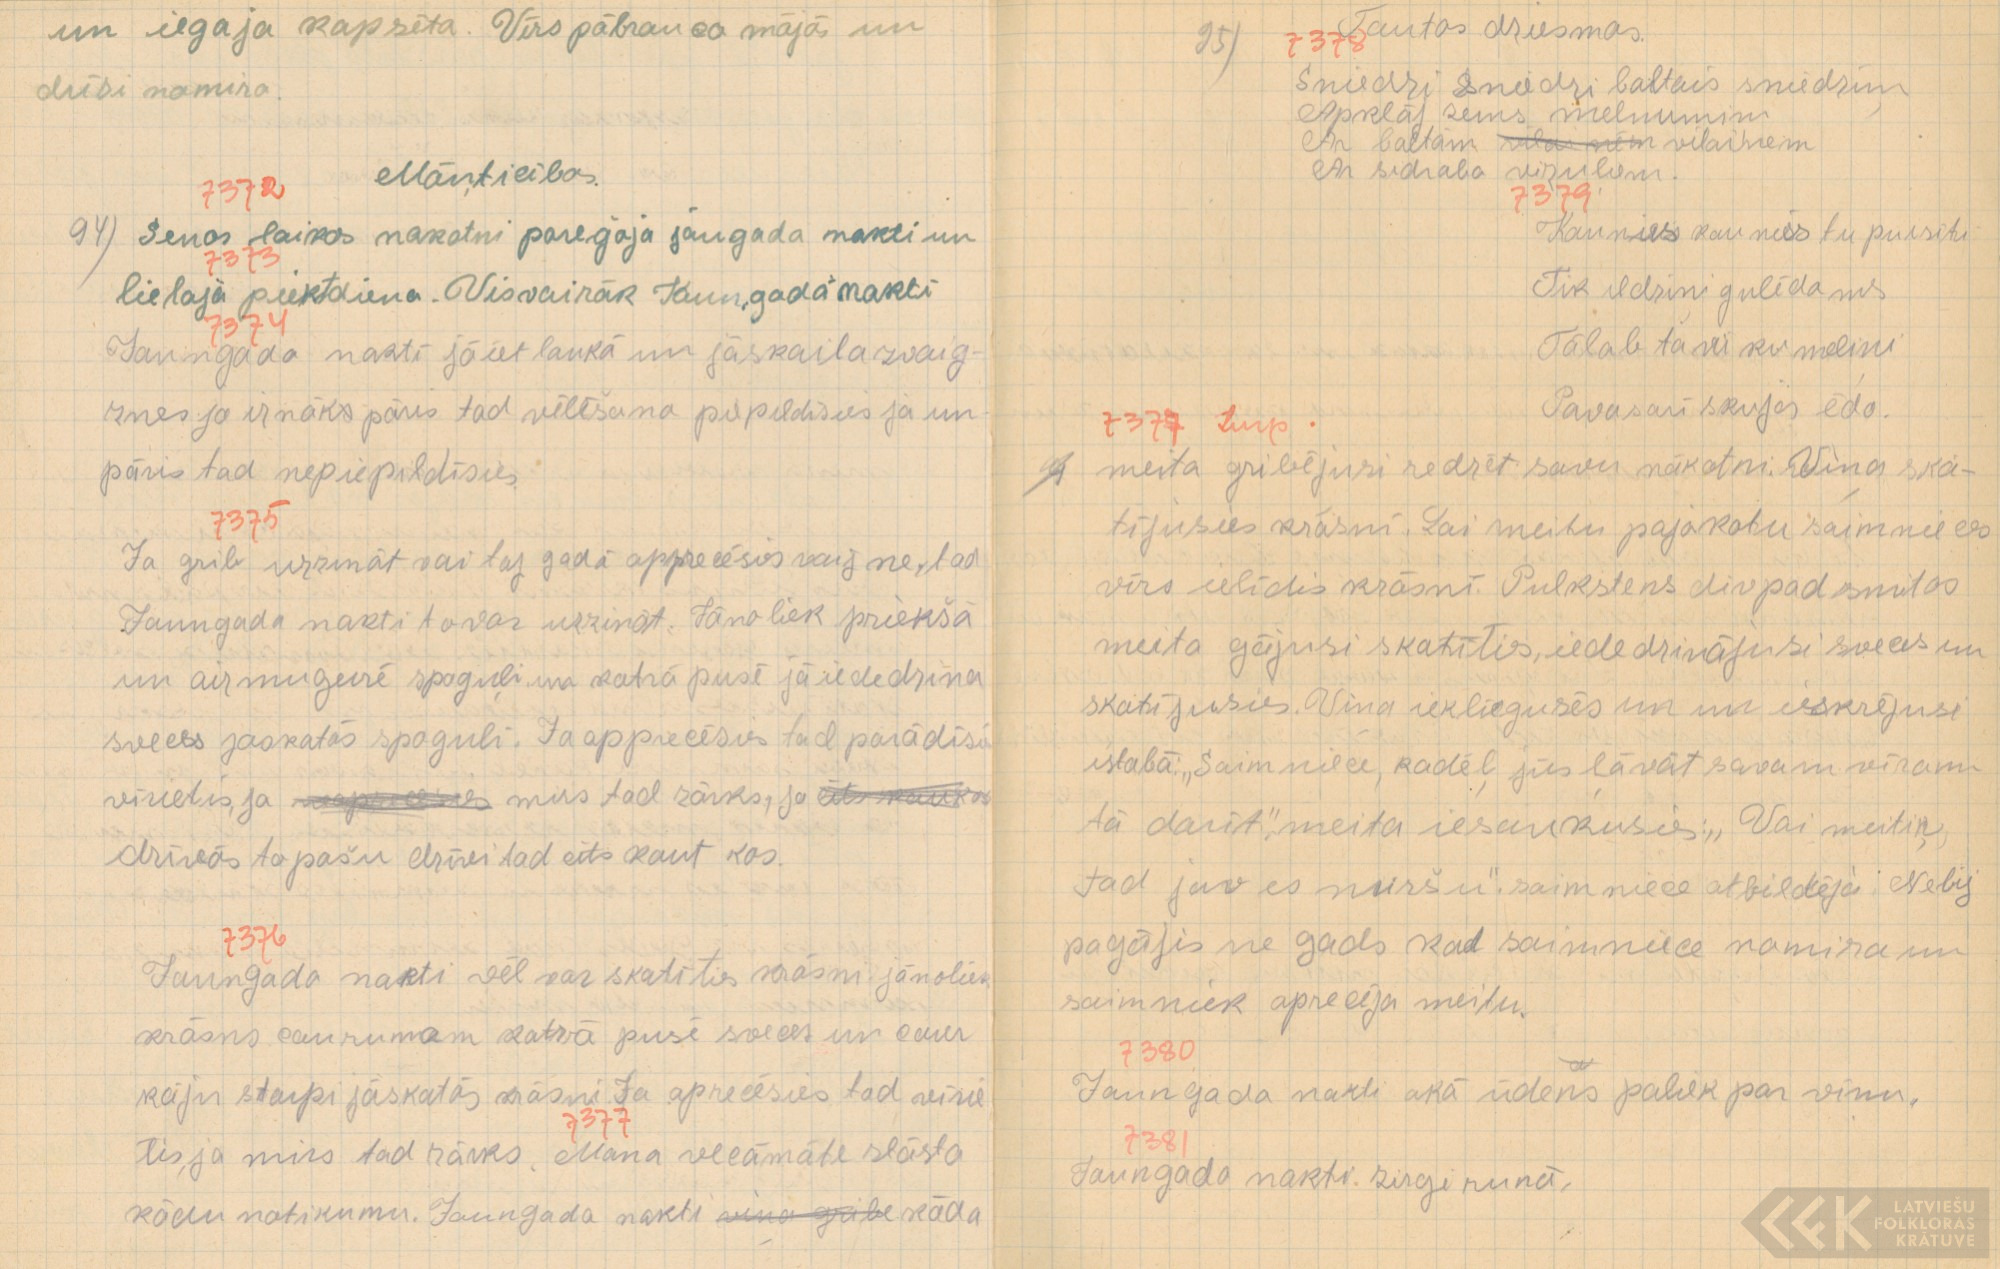 un iegaja kapsēta. Vīrs pābrauca mājās un
drīsi nomira.
Māņticības.
7372
94) Senos laikos nakotni paregāja jāugada nakti un
7373
lielajā piektdiena. Visvairāk Jaungadā nakti
7374
Jaungada naktī jāiet laukā un jāskaita zvaig-
znes ja iznāks pāris tad vēlēšana piepildīsies ja un
pāris tad nepiepildīsies.
7375
Ja grib uzzināt vai taj gadā apprecēsies vaij ne, tad
Jaungada nakti to var uzzināt. Jānoliek priekšā
un aizmugurē spoguļi un katrā pusē jāiededzina
sveces jaskatās spogulī. Ja apprecēsies tad parādīsi
vīrietis, ja mirs tad zārks, ja
dzīvās to pašu dzīvi tad cits kaut kas.
7376
Jaungada nakti vēl var skatīties krāsnī jānoliek
krāsns caurumam katrā pusē sveces un caur
kāju starpi jāskatās krāsni Ja aprecēsies tad vīrie
7377
tis, ja mirs tad zārks. Mana vecāmāte stāsta
kādu notikumu. Jaungada nakti vina gribe kāda
95) 7378 Tautas dziesmas.
Sniedzi sniedzi baltais sniedzin
Apklāj zems melnumim
Ar baltām vilainem
Ar sidraba vizuliem.
7379
Kaunies kaunies tu puisīti
Tik ildzini gulēdams
Tālab tavi kumelini
Pavasarī skujas ēda.
7377 turp.
meita gribējusi redzēt savu nākotni. Viņa ska-
tījusies krāsnī. Lai meitu pajokotu saimnieces
vīrs ielīdis krāsnī. Pulkstens divpadsmitos
meita gājusi skatīties, iededzinājusi sveces un
skatījusies. Vina iekliegusēs un un ieskrējusi
istabā: „Saimniece, kadēļ jūs ļāvāt savam vīram
tā darīt", meita iesaukusies: „Vai meitiņ,
tad jav es miršu". saimniece atbildēja. Nebij
pagājis ne gads kad saimniece nomira un
saimniek aprecēja meitu.
7380
Jaungada nakti akā ūdens paliek par vīnu.
7381
Jaungada nakti. zirgi runā.
LATVIEŠU
FOLKLORAS
KRĀTUVE